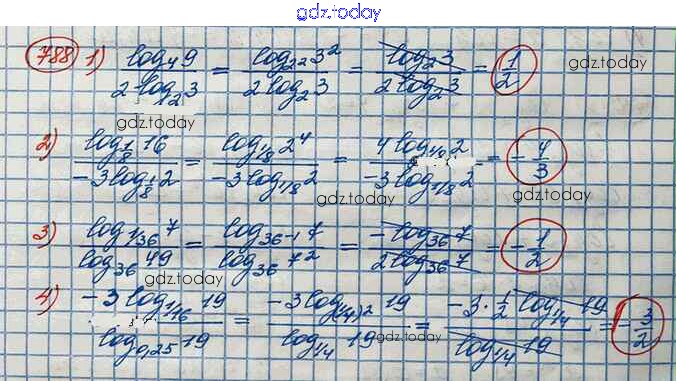 gdz.today
788 1) log₄9 / 2log₂3 = log₂²3² / 2log₂3 = log₂3 / 2log₂3 = 1/2 gdz.today
gdz.today
2) log₁/₈16 / -3log₁/₈2 = log₁/₈2⁴ / -3log₁/₈2 = 4log₁/₈2 / -3log₁/₈2 = -4/3 gdz.today
gdz.today
3) log₁/₃₆7 / log₃₆49 = log₃₆⁻¹7 / log₃₆7² = -log₃₆7 / 2log₃₆7 = -1/2
gdz.today
4) -3log₁/₁₆19 / log₀,₂₅19 = -3log₍₁/₄₎²19 / log₁/₄19 = -3·1/2 log₁/₄19 / log₁/₄19 = -3/2
gdz.today